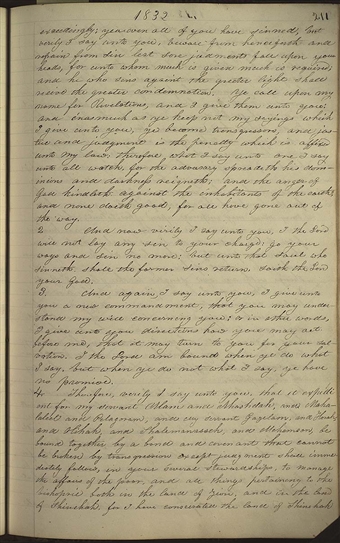 1832
211
exceedingly; yea even all of you have sinned, but
verily I say unto you, beware from henceforth and
refrain from sin lest sore judgments fall upon your
heads, for unto whom much is given much is required,
and he who sins against the greater light shall
receive the greater condemnation. Ye call upon my
name for Revelations, and I give them unto you:
and inasmuch as ye keep not my sayings which
I give unto you, ye become transgressors, and jus-
tice and judgment is the penalty which is affixed
unto my law: therefore, what I say unto one I say
unto all watch, for the adversary spreadeth his dom-
inions and darkness reigneth: and the anger of
God kindleth against the inhabitants of the earth;
and none doeth good, for all have gone out of
the way.
2 And now verily I say unto you, I the Lord
will not lay any sin to your charge: go your
ways and sin no more: but unto that soul who
sinneth, shall the former sins return. Saith the Lord
your God.
3. And again, I say unto you, I give unto
you a new commandment, that you may under-
stand my will concerning you; or in other words,
I give unto you directions how you may act
before me, that it may turn to you for your sal-
vation. I the Lord am bound when ye do what
I say, but when ye do not what I say, ye have
no promise.
4. Therefore, verily I say unto you, that it is expedi-
ent for my servant Alam and Ahashdah, and Maha-
laleel and Pelagoram, and my servant Gazelam, and Horah,
and Olihah, and Shalemanasseh, and Mehemson, be
bound together by a bond and covenant that cannot
be broken by transgression except judgment shall imme-
diately follow, in your several Stewardships, to manage
the affairs of the poor, and all things pertaining to the
bishopric both in the land of Zion, and in the land
of Shinehah, for I have consecrated the land of Shinehah